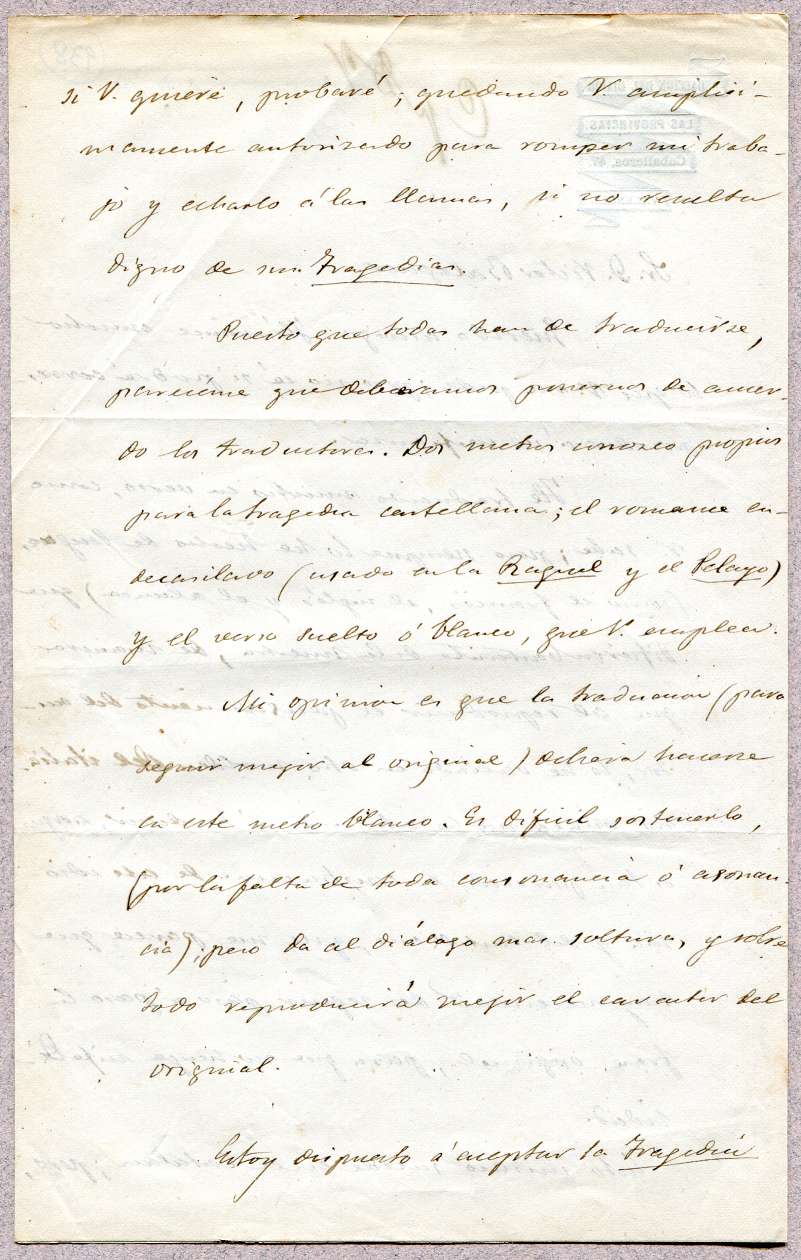 si V. quiere, probaré; quedando V. amplisi-
mamente autorizado para romper mi traba-
jo y echarlo á las llamas, si no resulta
digno de sus Tragedias.
Puesto que todas han de traducirse,
pareceme que debieramos ponernos de acuer-
do los traductores. Dos metros conozco propios
para la tragedia castellana; el romance en-
decasilavo (usado en la Raquel y el Pelayo)
y el verso suelto ó blanco, que V. emplea.
Mi opinion es que la traduccion (para
seguir mejor al original) debiera hacerse
en este metro blanco. Es dificil sostenerlo,
(por la falta de toda consonancia ó asonan-
cia), pero da al diálogo mas soltura, y sobre
todo reproducirá mejor el caracter del
original.
Estoy dispuesto á aceptar la Tragedia
LAS PROVINCIAS
Caballeros, 47